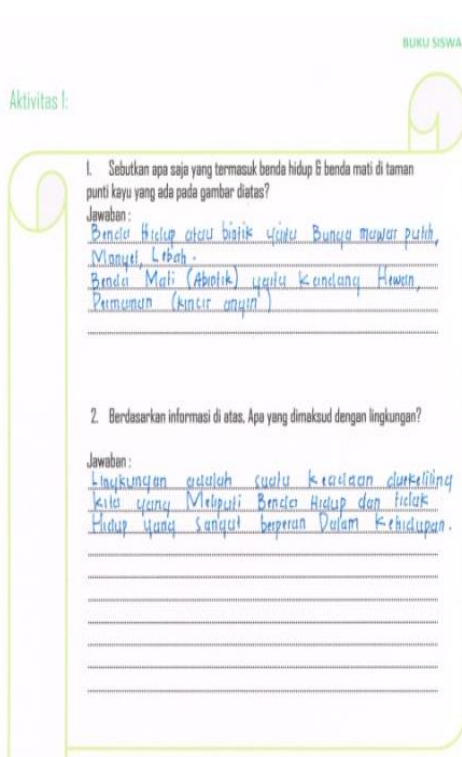 BUKU SISWA
Aktivitas 1:
1. Sebutkan apa saja yang termasuk benda hidup & benda mati di taman
punti kayu yang ada pada gambar diatas?
Jawaban :
Benda Hidup atau biotik yaitu Bunga mawar putih,
Monyet, Lebah.
Benda Mati (Abiotik) yaitu Kandang Hewan,
Permainan (kincir angin)
2. Berdasarkan informasi di atas, Apa yang dimaksud dengan lingkungan?
Jawaban :
Lingkungan adalah suatu keadaan disekeliling
kita yang Meliputi Benda Hidup dan tidak
Hidup yang sangat berperan Dalam Kehidupan.